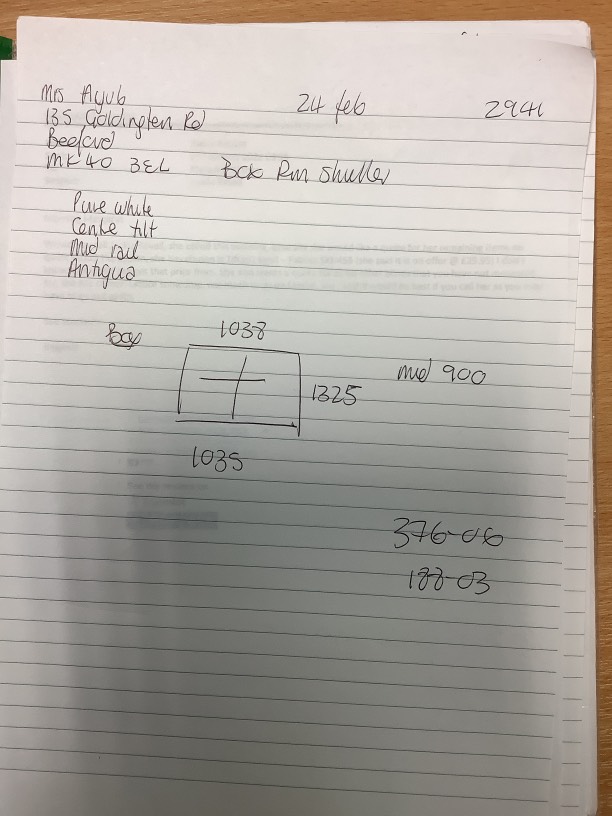 Mrs Ayub 24 feb 2941
135 Goldington Rd
Bedford
MK40 3EL Bck Rm Shutter
Pure white
Centre tilt
Mid rail
Antigua
1038
mid 900
1325
1035
376-06
188-03